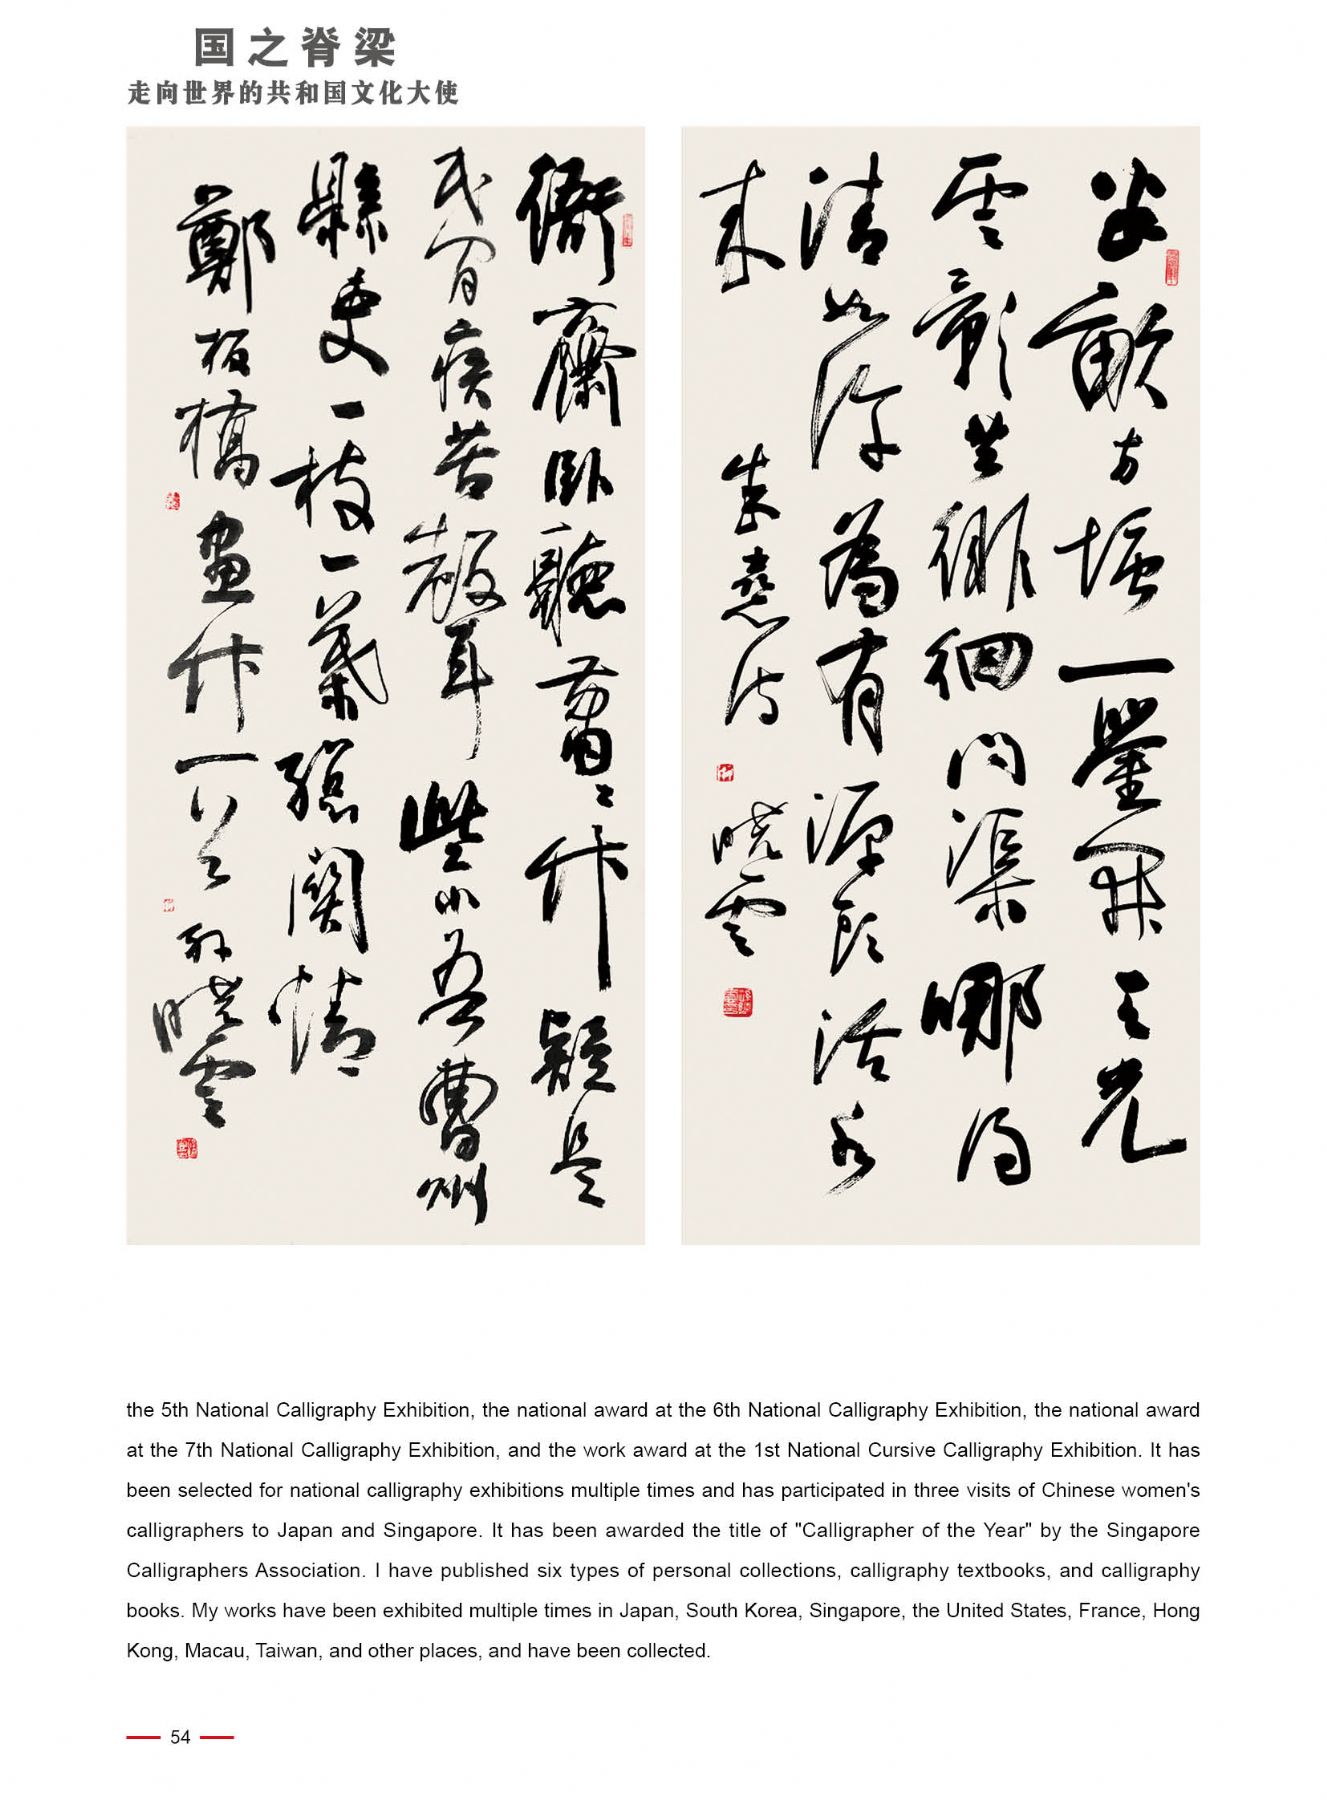 国之脊梁
走向世界的共和国文化大使
半畝方塘一鑒開天光
雲影共徘徊問渠哪得
清如許為有源頭活水
來
朱熹詩
曉雲
衙齋臥聽蕭蕭竹疑是
民間疾苦聲些小吾曹州
縣吏一枝一葉總關情
鄭板橋畫竹一首 孫曉雲
the 5th National Calligraphy Exhibition, the national award at the 6th National Calligraphy Exhibition, the national award
at the 7th National Calligraphy Exhibition, and the work award at the 1st National Cursive Calligraphy Exhibition. It has
been selected for national calligraphy exhibitions multiple times and has participated in three visits of Chinese women's
calligraphers to Japan and Singapore. It has been awarded the title of "Calligrapher of the Year" by the Singapore
Calligraphers Association. I have published six types of personal collections, calligraphy textbooks, and calligraphy
books. My works have been exhibited multiple times in Japan, South Korea, Singapore, the United States, France, Hong
Kong, Macau, Taiwan, and other places, and have been collected.
54